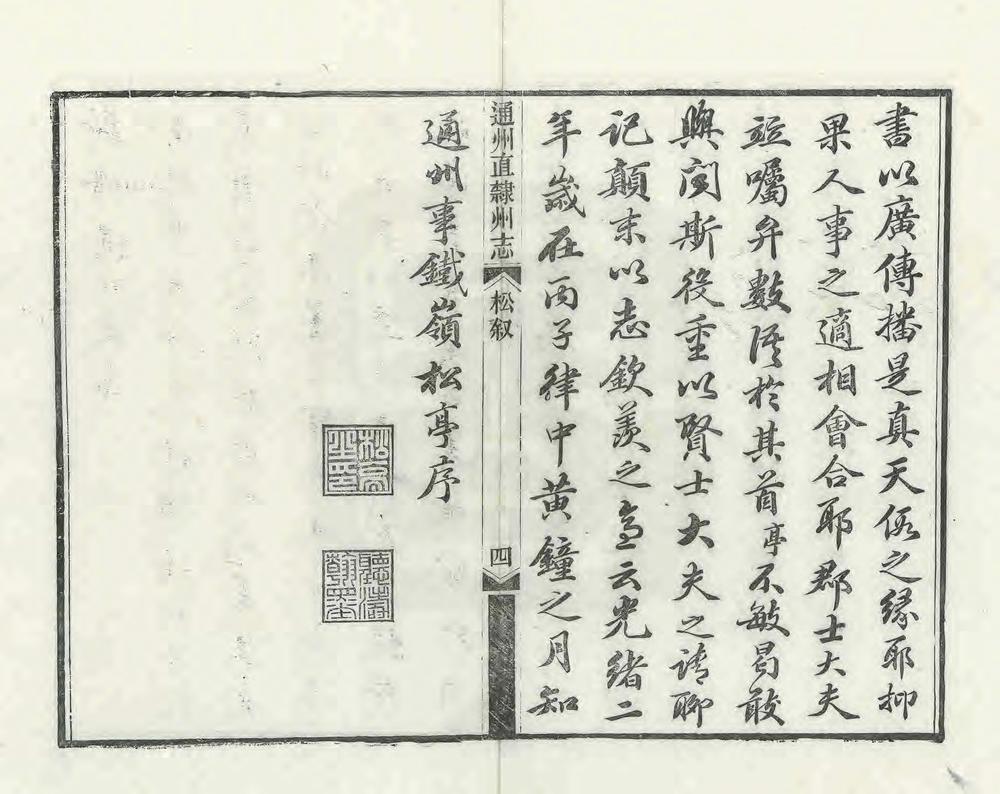 書以廣傳播是真天假之緣耶抑
果人事之適相會合耶郡士大夫
竝囑弁數語於其首亭不敏曷敢
與聞斯役重以賢士大夫之請聊
記顛末以志欽羨之意云光緒二
年歲在丙子律中黃鐘之月知
通州直隸州志
松叙
四
通州事鐵嶺松亭序
松亭之印
聽濤翰墨